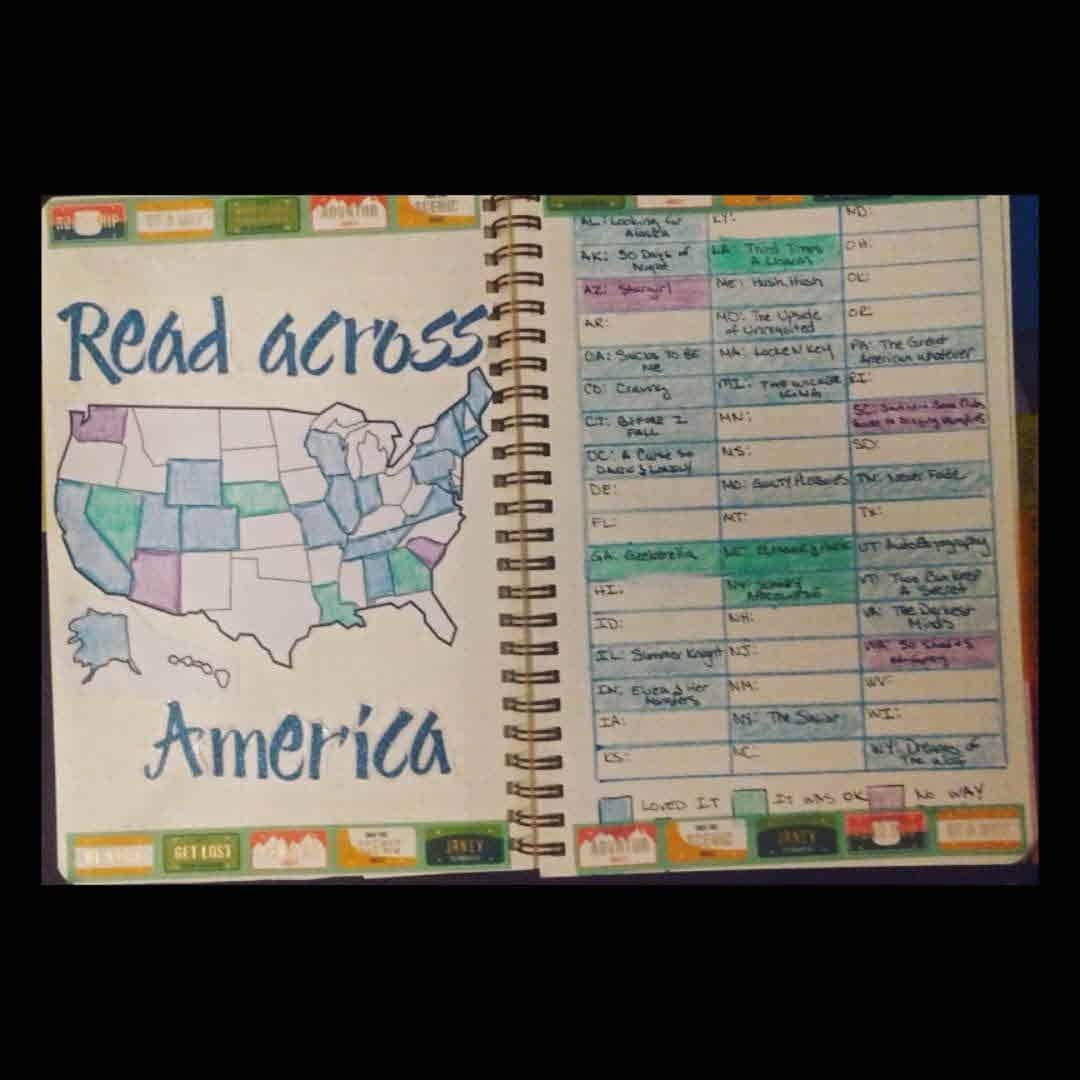 Read across
America
GET LOST
AL: Looking for
Alaska
AK: 30 Days of
Night
AZ: Stargirl
AR:
CA: SUCKS TO BE
ME
CO: Craving
CT: BEFORE I
FALL
DC: A CURSE SO
DARK & LONELY
DE:
FL:
GA: Geekerella
HI:
ID:
IL: Summer Knight
IN: Eliza & Her
Monsters
IA:
KS:
KY:
LA: Third Time's
A Charm
ME: Hush, Hush
MD: The Upside
of Unrequited
MA: Locke N Key
MI: THE WICKED
MN:
MS:
MO: GUILTY PLEASURES
MT:
NE:
NV:
NH:
NJ:
NM:
NY: The
NC:
ND:
OH:
OK:
OR:
PA: The Great
American Whatever
RI:
SC: Book Club's
Guide to Slaying Vampires
SD:
TN: Never Fade
TX:
UT
VT: Two Can Keep
A Secret
VA: The Darkest
Minds
WA: 50 Shades
of Gray
WV:
WI:
WY: Dreams of
The
LOVED IT
IT WAS OK
NO WAY